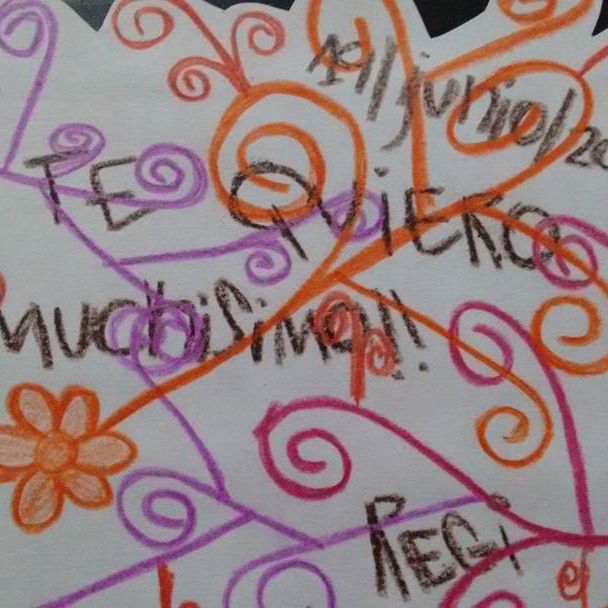 19/junio/20
TE QUiERO
muchisimo!!
REGi